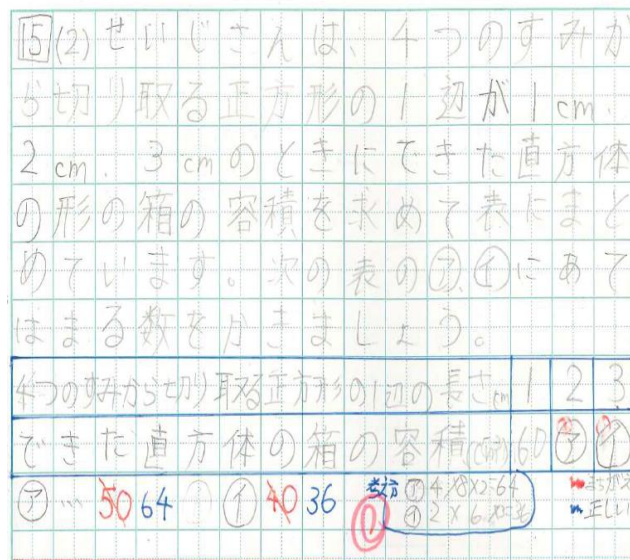 15 (2) せいじさんは、4つのすみか
ら切り取る正方形の1辺が1cm.
2cm. 3cmのときにできた直方体
の形の箱の容積を求めて表にまと
めています。次の表の㋐、㋑にあて
はまる数をかきましょう。
4つのすみから切り取る正方形の1辺の長さcm 1 2 3
できた直方体の箱の容積(cm³) 60 ㋐ ㋑
㋐… 50 64 ㋑ 40 36
考え方 ㋐ 4×8×2=64
㋑ 2×6×
正しい